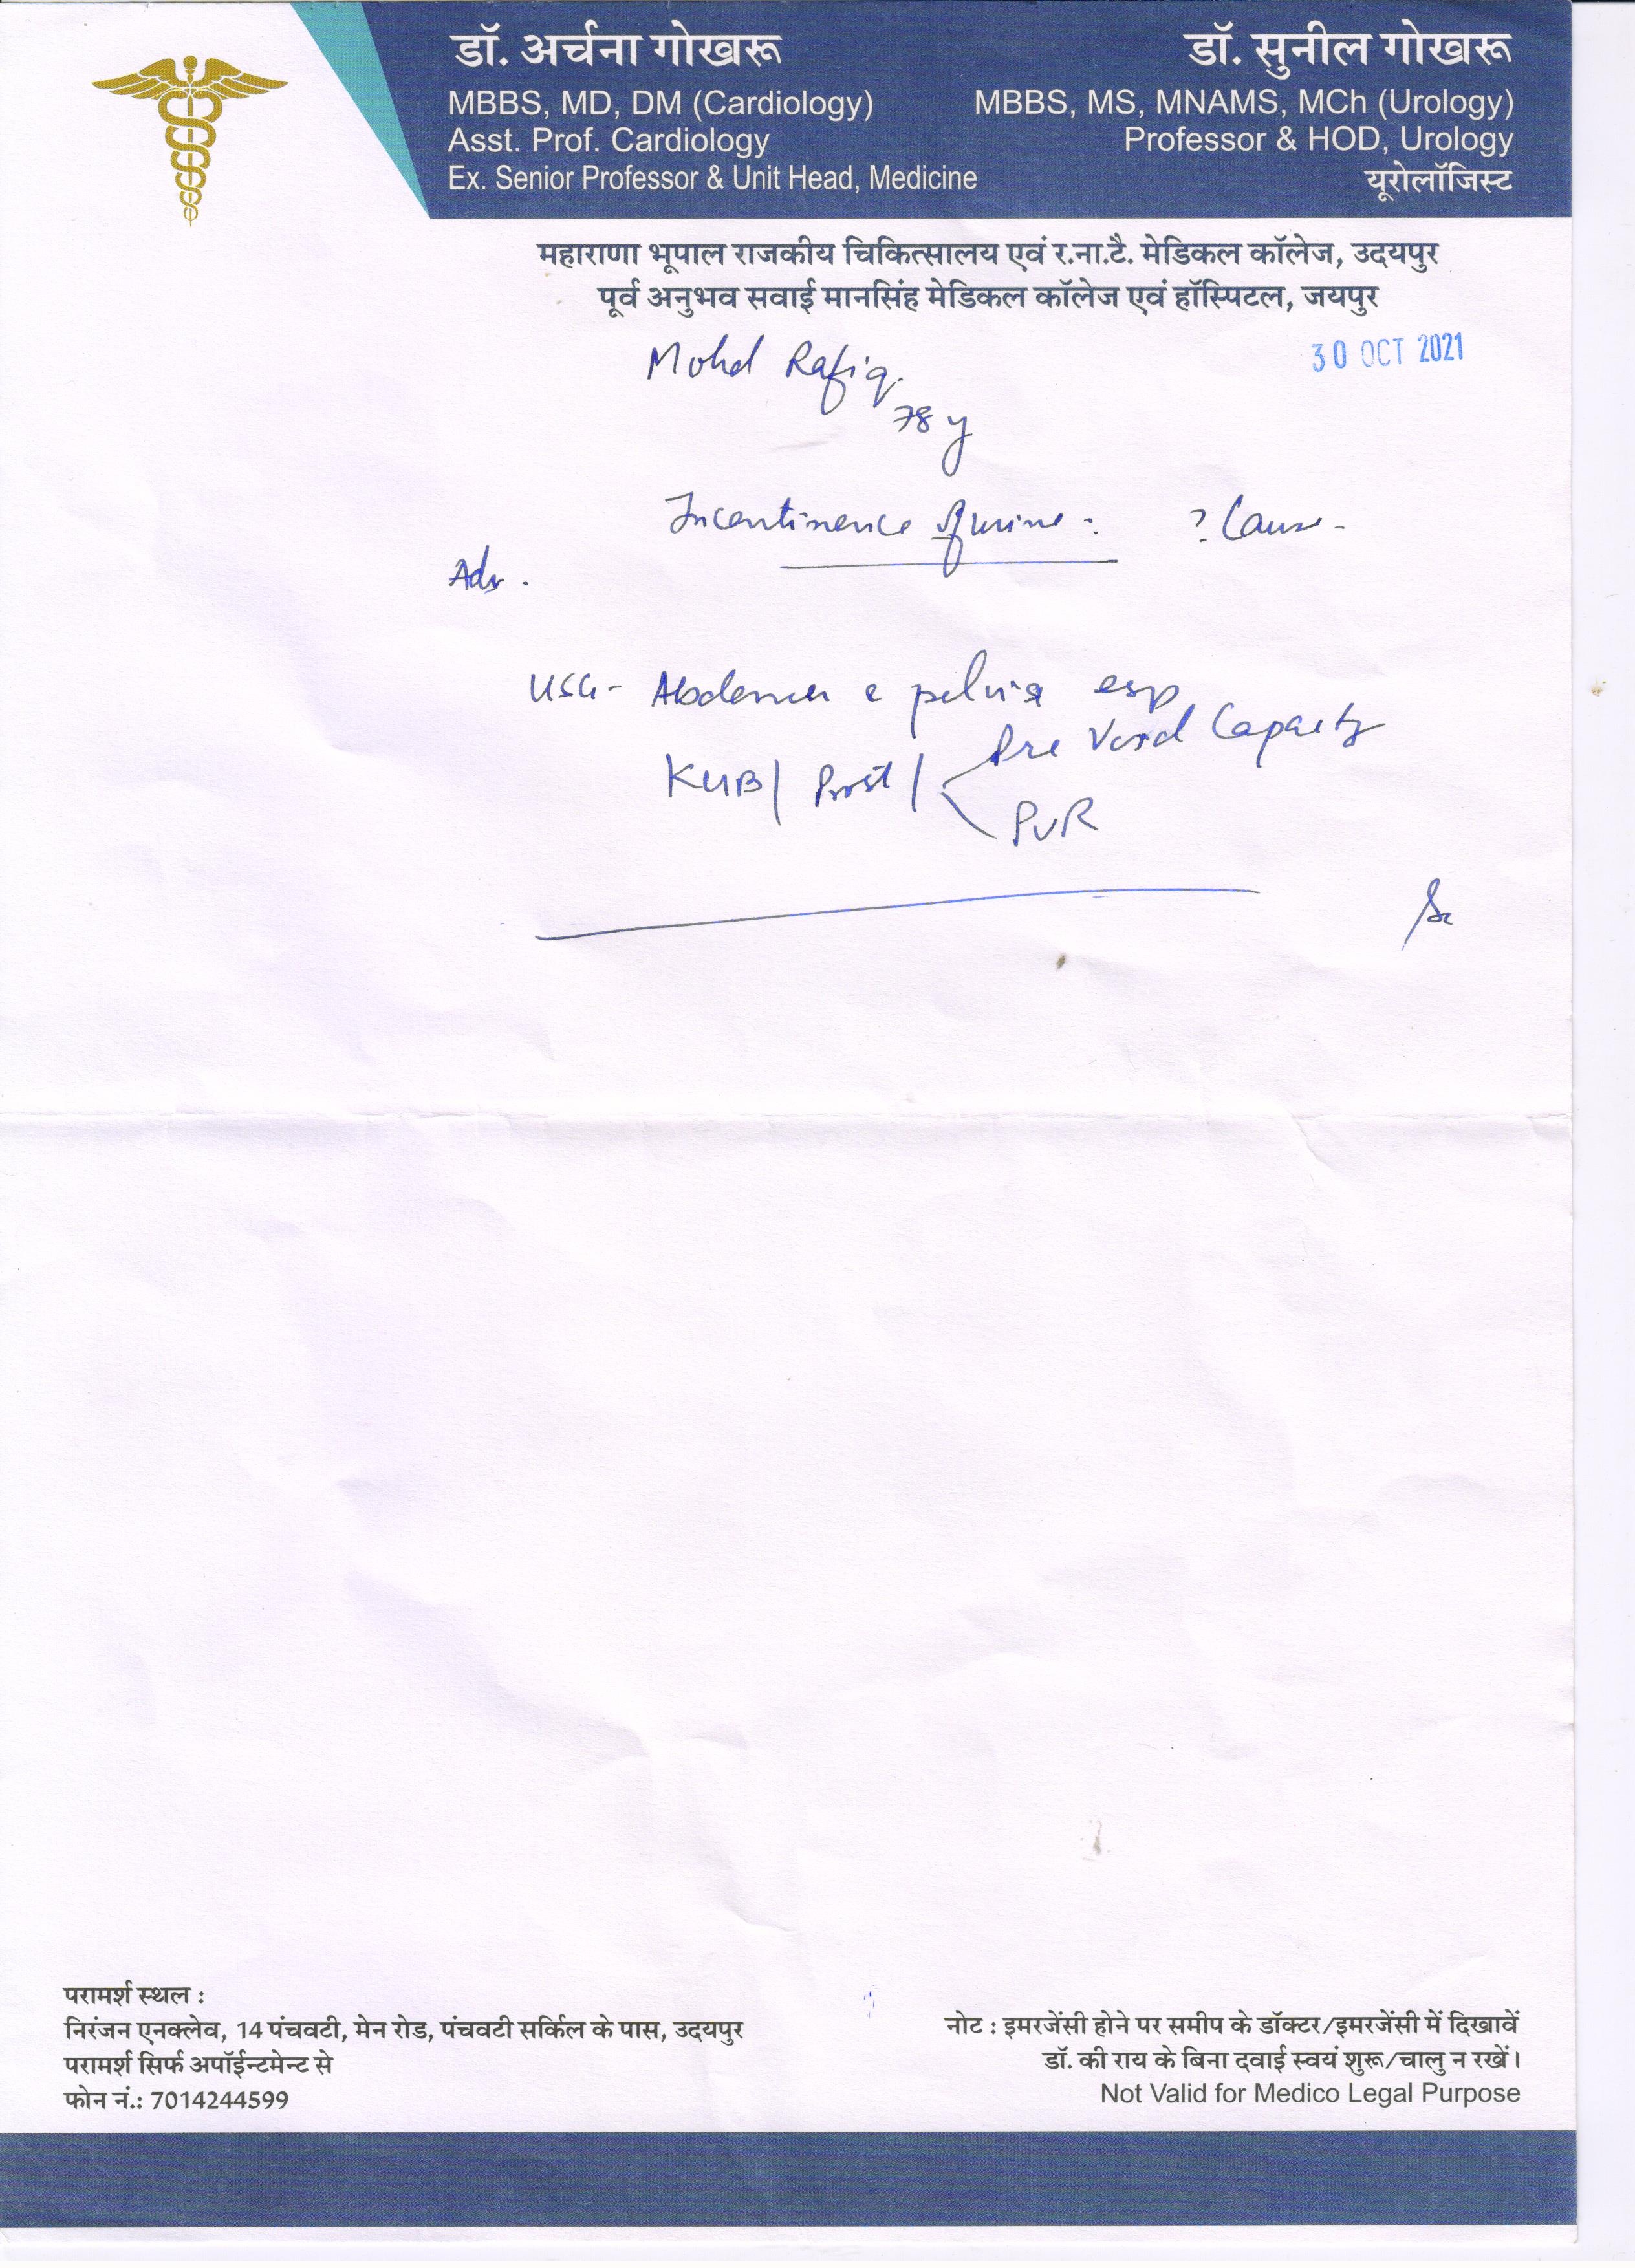 डॉ. अर्चना गोखरू
MBBS, MD, DM (Cardiology)
Asst. Prof. Cardiology
Ex. Senior Professor & Unit Head, Medicine
डॉ. सुनील गोखरू
MBBS, MS, MNAMS, MCh (Urology)
Professor & HOD, Urology
यूरोलॉजिस्ट
महाराणा भूपाल राजकीय चिकित्सालय एवं र.ना.टै. मेडिकल कॉलेज, उदयपुर
पूर्व अनुभव सवाई मानसिंह मेडिकल कॉलेज एवं हॉस्पिटल, जयपुर
30 OCT 2021
Mohd Rafiq.
78 y
Incontinence of urine - ? Cause -
Adv.
USG - Abdomen c pelvis esp
KUB / Prost / Pre Void Capacity
PVR
परामर्श स्थल :
निरंजन एनक्लेव, 14 पंचवटी, मेन रोड, पंचवटी सर्किल के पास, उदयपुर
परामर्श सिर्फ अपॉईन्टमेन्ट से
फोन नं.: 7014244599
नोट : इमरजेंसी होने पर समीप के डॉक्टर/इमरजेंसी में दिखावें
डॉ. की राय के बिना दवाई स्वयं शुरू/चालु न रखें।
Not Valid for Medico Legal Purpose